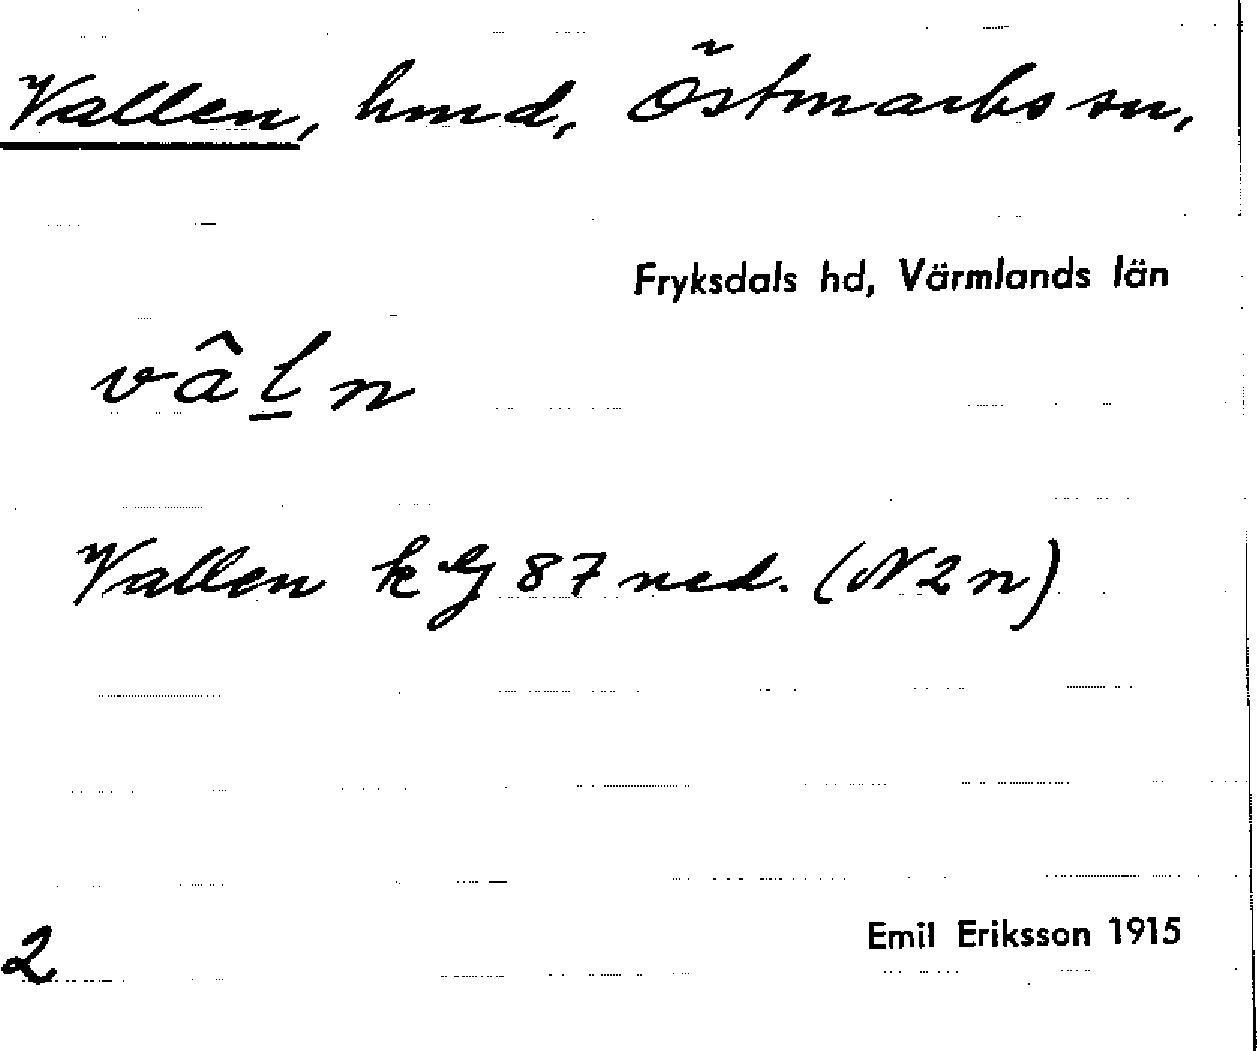 Vallen, hmd, Östmarks sn,
Fryksdals hd, Värmlands län
vâl̲n
Vallen k G 87 ned. (N2n)
2
Emil Eriksson 1915